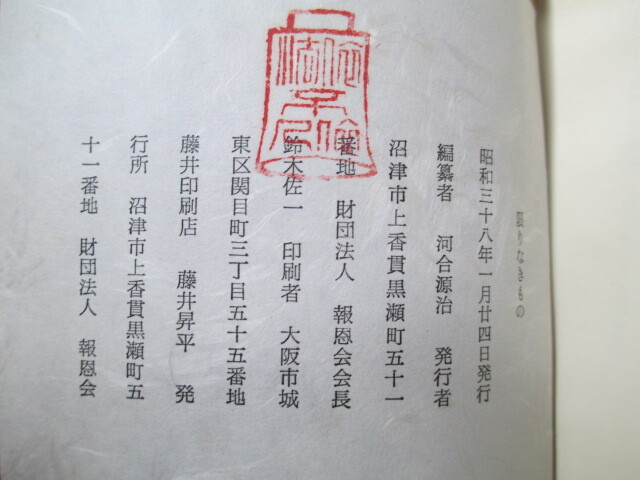 限りなきもの
昭和三十八年一月廿四日発行
編纂者 河合源治 発行者
沼津市上香貫黒瀬町五十一
番地 財団法人 報恩会会長
鈴木佐一 印刷者 大阪市城
東区関目町三丁目五十五番地
藤井印刷店 藤井昇平 発
行所 沼津市上香貫黒瀬町五
十一番地 財団法人 報恩会